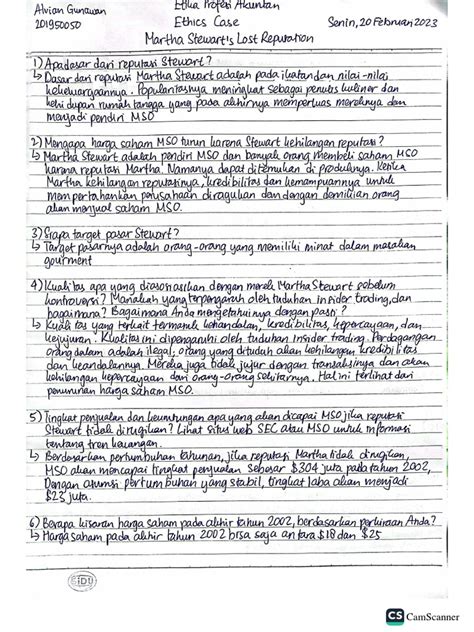 Alvian Gunawan
201950050
Etika Profesi Akuntan
Ethics Case
Senin, 20 Februari 2023
Martha Stewart's Lost Reputation
1) Apa dasar dari reputasi Stewart?
↳ Dasar dari reputasi Martha Stewart adalah pada ikatan dan nilai-nilai
kekeluargaannya. Popularitasnya meningkat sebagai penulis kuliner dan
kehidupan rumah tangga yang pada akhirnya memperluas mereknya dan
menjadi pendiri MSO
2) Mengapa harga saham MSO turun karena Stewart kehilangan reputasi?
↳ Martha Stewart adalah pendiri MSO dan banyak orang membeli saham MSO
karena reputasi Martha. Namanya dapat ditemukan di produknya. Ketika
Martha kehilangan reputasinya, kredibilitas dan kemampuannya untuk
mempertahankan perusahaan diragukan dan dengan demikian orang
akan menjual saham MSO.
3) Siapa target pasar Stewart?
↳ Target pasarnya adalah orang-orang yang memiliki minat dalam masakan
gourment
4) Kualitas apa yang diasosiasikan dengan merek Martha Stewart sebelum
kontroversi? Manakah yang terpengaruh oleh tuduhan insider trading, dan
bagaimana? Bagaimana Anda mengetahuinya dengan pasti?
↳ Kualitas yang terkait termasuk kehandalan, kredibilitas, kepercayaan, dan
kejujuran. Kualitas ini dipengaruhi oleh tuduhan insider trading. Perdagangan
orang dalam adalah ilegal, orang yang dituduh akan kehilangan kredibilitas
dan keandalannya. Mereka juga tidak jujur dengan transaksinya dan akan
kehilangan kepercayaan dari orang-orang sekitarnya. Hal ini terlihat dari
penurunan harga saham MSO.
5) Tingkat penjualan dan keuntungan apa yang akan dicapai MSO jika reputasi
Stewart tidak dirugikan? Lihat situs web SEC atau MSO untuk informasi
tentang tren keuangan.
↳ Berdasarkan pertumbuhan tahunan, jika reputasi Martha tidak dirugikan,
MSO akan mencapai tingkat penjualan sebesar $304 juta pada tahun 2002,
Dengan asumsi pertumbuhan yang stabil, tingkat laba akan menjadi
$23 juta.
6) Berapa kisaran harga saham pada akhir tahun 2002, berdasarkan perkiraan Anda?
↳ Harga saham pada akhir tahun 2002 bisa saja antara $18 dan $25
SIDU
CS CamScanner